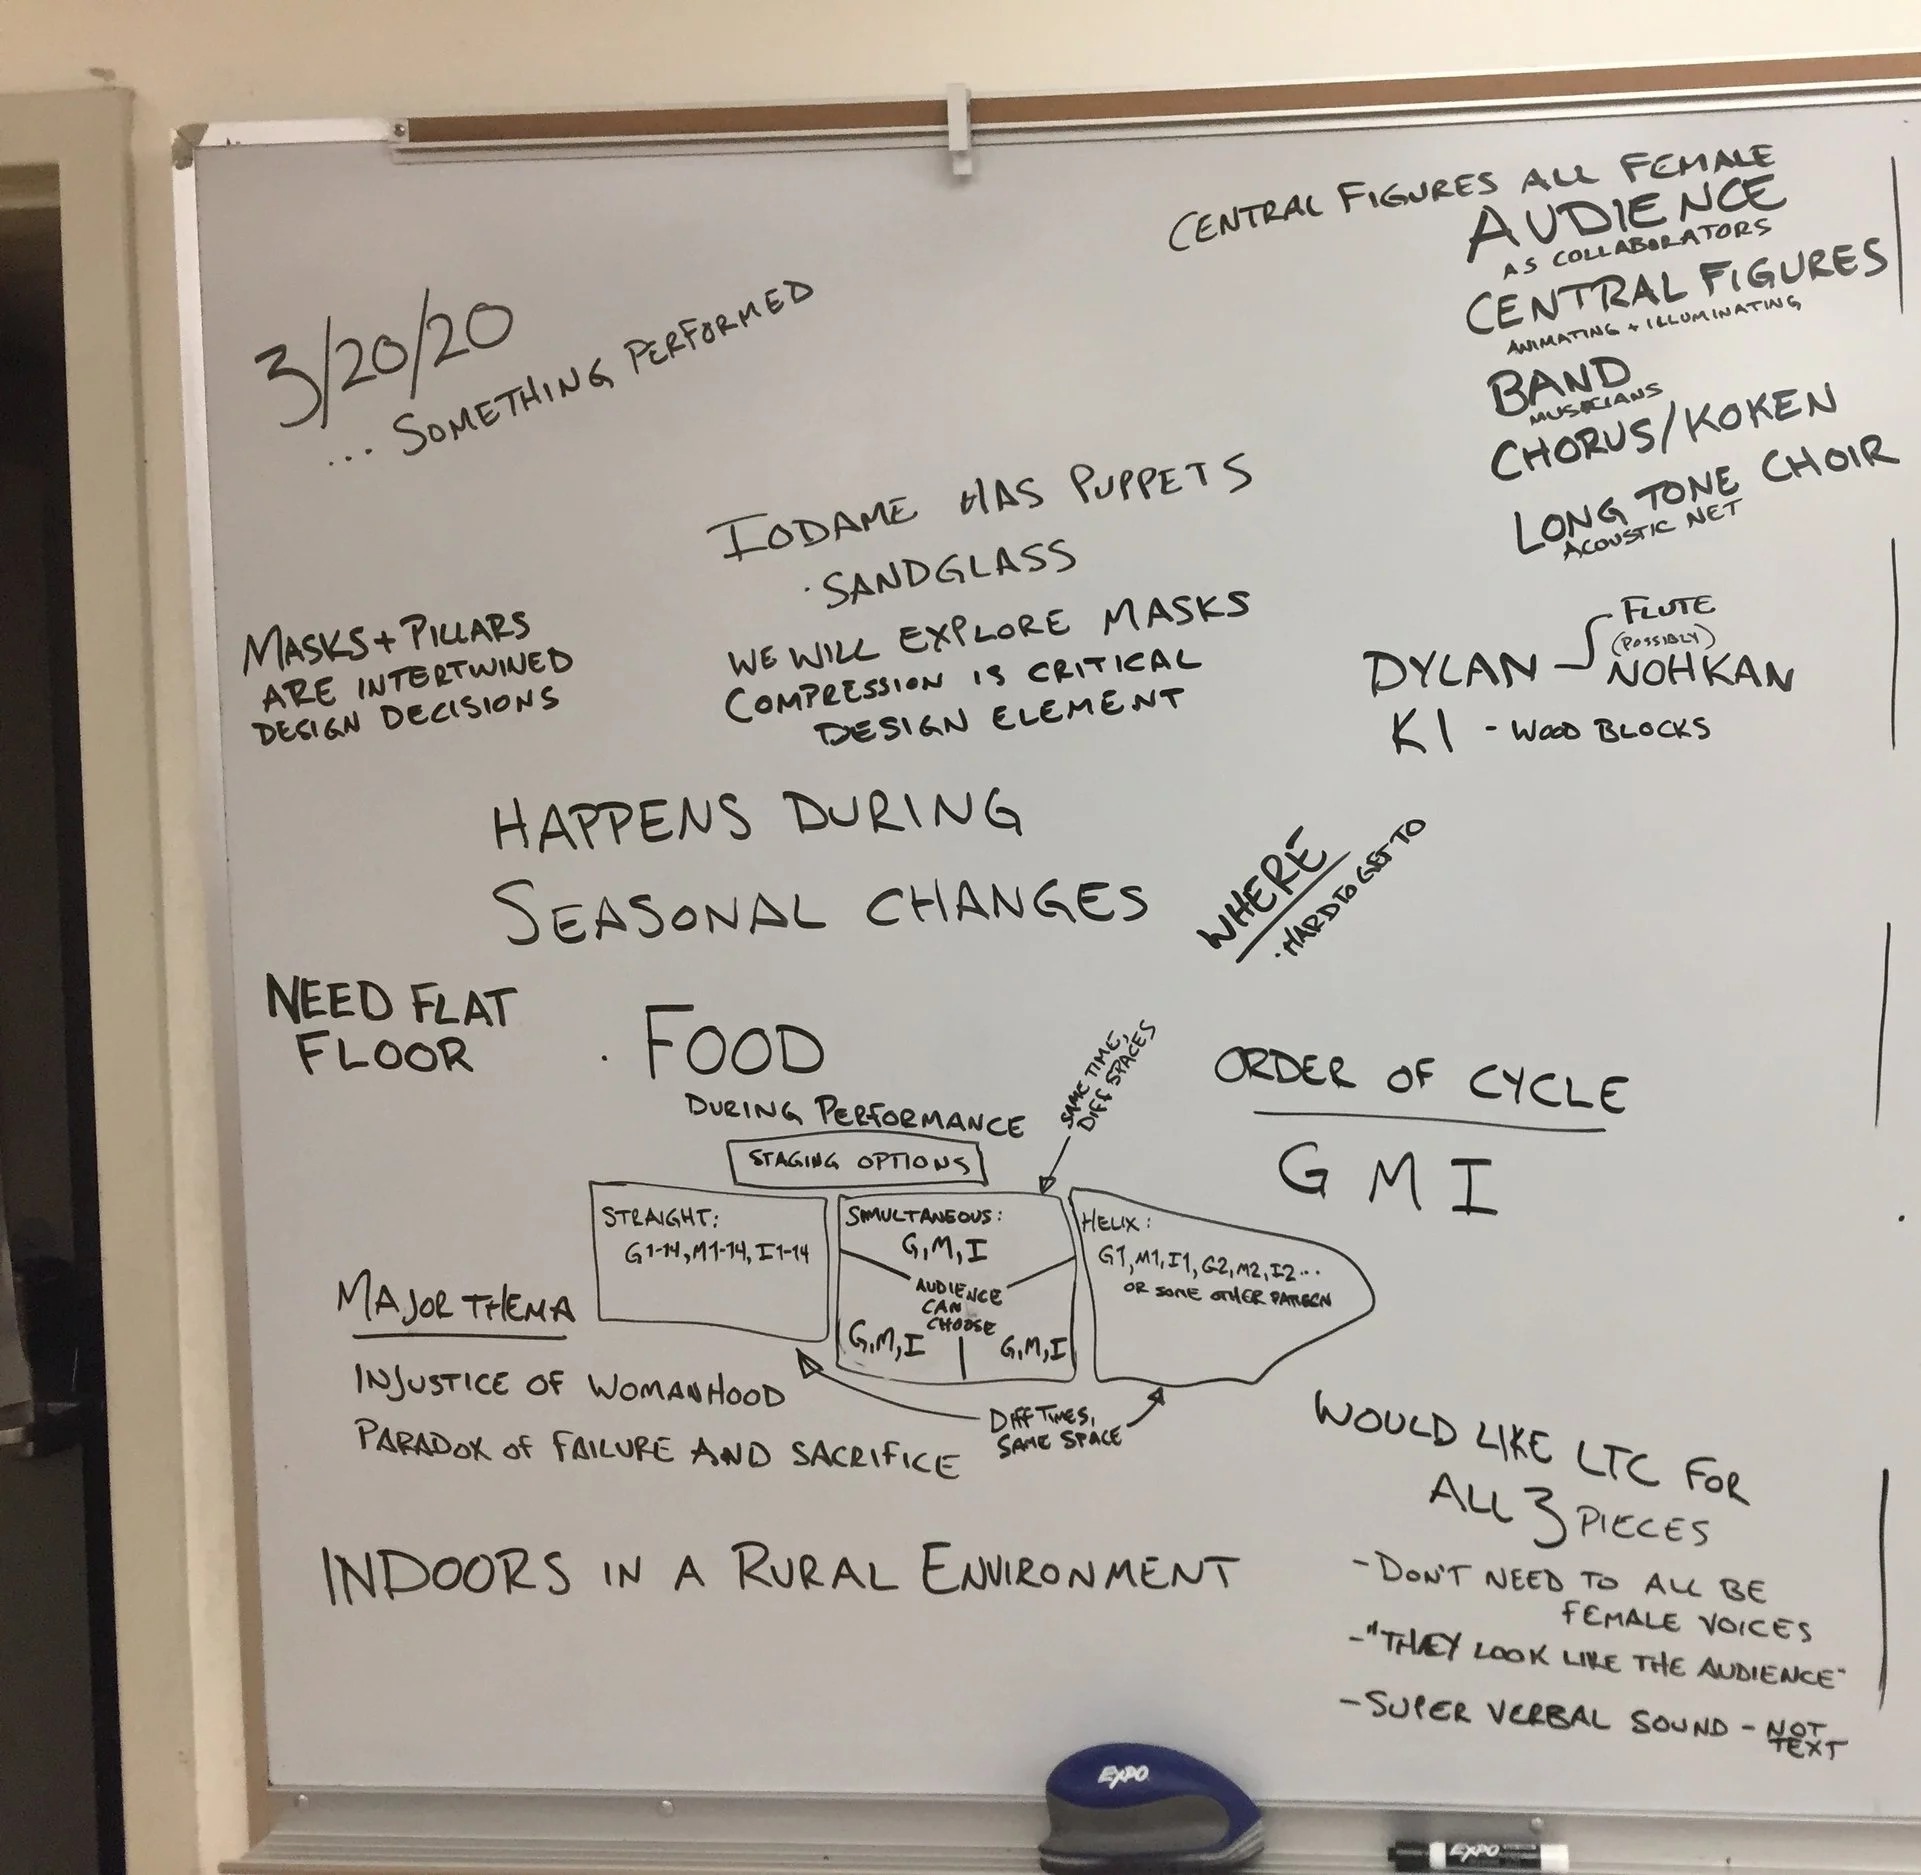 CENTRAL FIGURES ALL FEMALE
AUDIENCE
AS COLLABORATORS
CENTRAL FIGURES
ANIMATING + ILLUMINATING
BAND
MUSICIANS
CHORUS/KOKEN
LONG TONE CHOIR
ACOUSTIC NET
3/20/20
... SOMETHING PERFORMED
IODAME HAS PUPPETS
· SANDGLASS
WE WILL EXPLORE MASKS
COMPRESSION IS CRITICAL
DESIGN ELEMENT
MASKS + PILLARS
ARE INTERTWINED
DESIGN DECISIONS
DYLAN
FLUTE
(POSSIBLY)
NOHKAN
KI - WOOD BLOCKS
HAPPENS DURING
SEASONAL CHANGES
WHERE
· HARD TO GET TO
NEED FLAT
FLOOR
· FOOD
DURING PERFORMANCE
SAME TIME,
DIFF SPACES
ORDER OF CYCLE
G M I
STAGING OPTIONS
STRAIGHT:
G1-14, M1-14, I1-14
SIMULTANEOUS:
G, M, I
AUDIENCE
CAN
CHOOSE
G, M, I
G, M, I
HELIX:
G1, M1, I1, G2, M2, I2...
OR SOME OTHER PATTERN
DIFF TIMES,
SAME SPACE
MAJOR THEMA
INJUSTICE OF WOMANHOOD
PARADOX OF FAILURE AND SACRIFICE
INDOORS IN A RURAL ENVIRONMENT
WOULD LIKE LTC FOR
ALL 3 PIECES
- DON'T NEED TO ALL BE
FEMALE VOICES
- "THEY LOOK LIKE THE AUDIENCE"
- SUPER VERBAL SOUND - NOT
TEXT
EXPO
EXPO